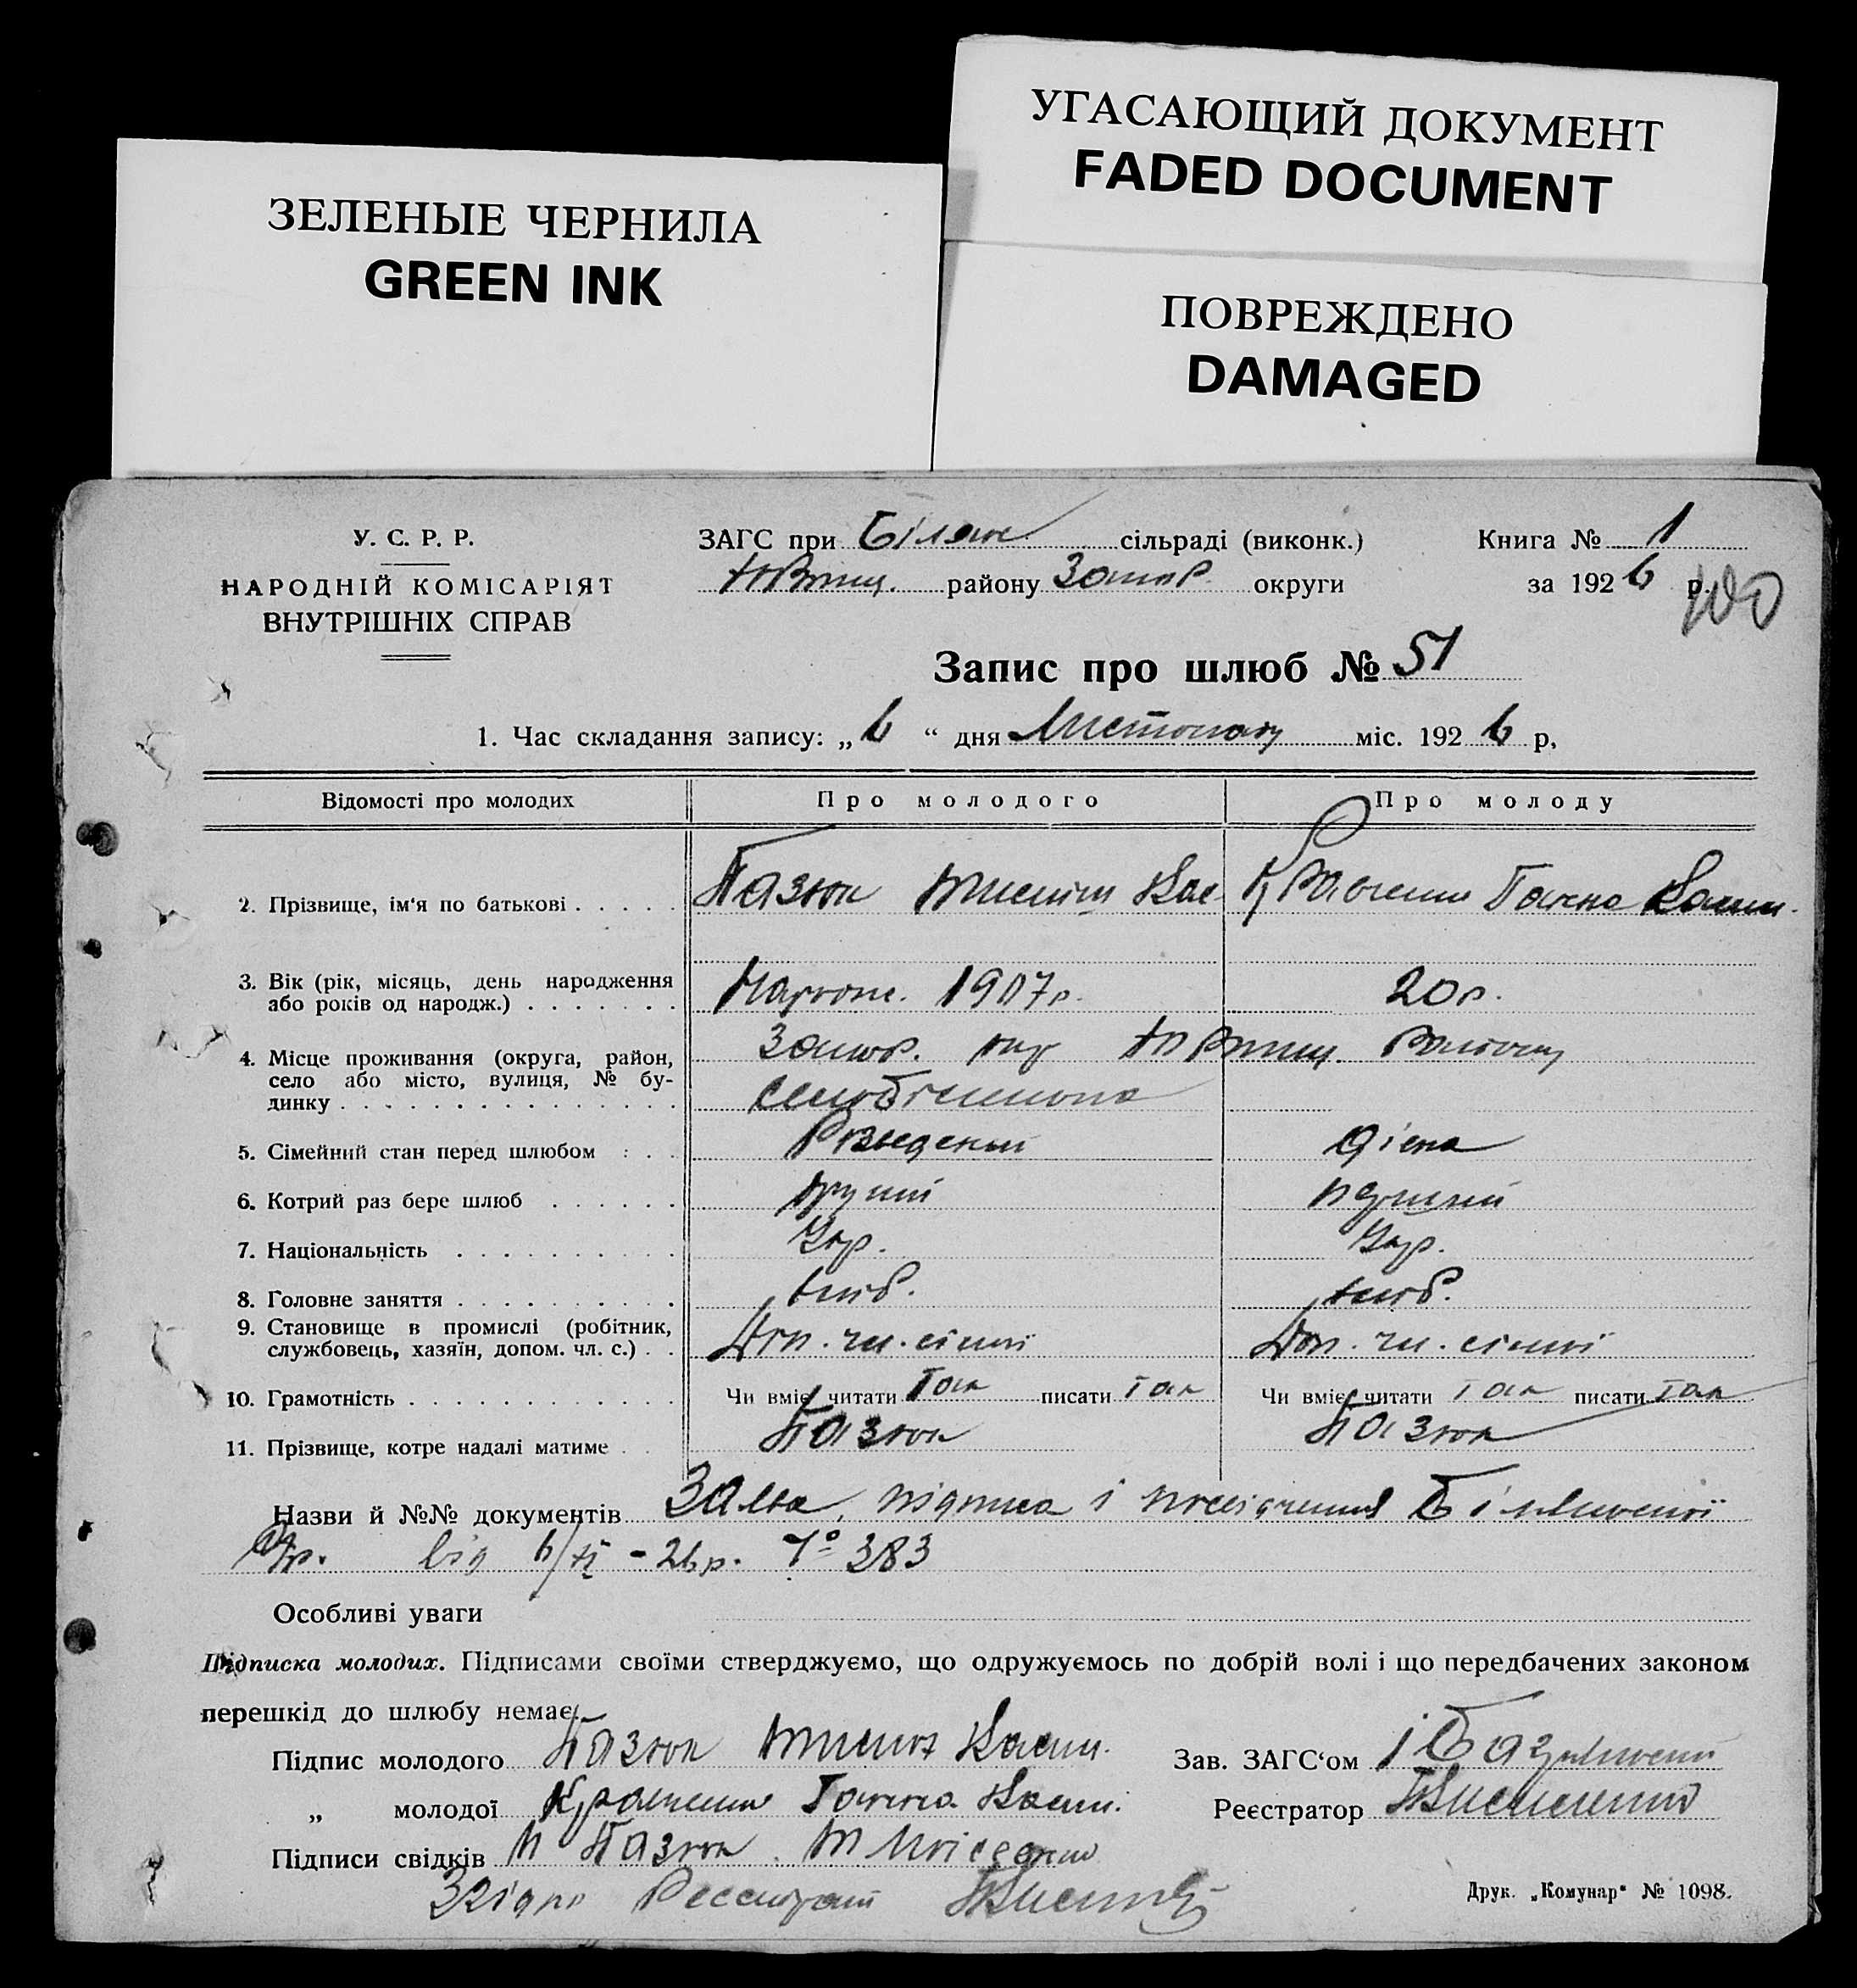 УГАСАЮЩИЙ ДОКУМЕНТ
FADED DOCUMENT
ЗЕЛЕНЫЕ ЧЕРНИЛА
GREEN INK
ПОВРЕЖДЕНО
DAMAGED
У. С. Р. Р.
НАРОДНІЙ КОМІСАРІЯТ
ВНУТРІШНІХ СПРАВ
ЗАГС при сільраді (виконк.) Книга № 1
району округи за 1926 р.
100
Запис про шлюб № 51
1. Час складання запису: „6“ дня Листопаду міс. 1926 р,
Відомості про молодих Про молодого Про молоду
2. Прізвище, ім'я по батькові Пазюк Кравченко Ганна
3. Вік (рік, місяць, день народження або років од народж.) 1907р. 20р.
4. Місце проживання (округа, район, село або місто, вулиця, № будинку
5. Сімейний стан перед шлюбом Розведений Дівка
6. Котрий раз бере шлюб другий перший
7. Національність Укр. Укр.
8. Головне заняття хліб. хліб.
9. Становище в промислі (робітник, службовець, хазяїн, допом. чл. с.) Доп. чл. сімї Доп. чл. сімї
10. Грамотність Чи вміє читати так писати так Чи вміє читати так писати так
11. Прізвище, котре надалі матиме Пазюк Пазюк
Назви й №№ документів Заява, підписка і посвідчення
від 6/XI - 26р. № 383
Особливі уваги
Підписка молодих. Підписами своїми стверджуємо, що одружуємось по добрій волі і що передбачених законом
перешкід до шлюбу немає.
Підпис молодого Пазюк Зав. ЗАГС'ом
„ молодої Кравченко Ганна Реєстратор
Підписи свідків Пазюк
Згідно
Друк. „Комунар“ № 1098.